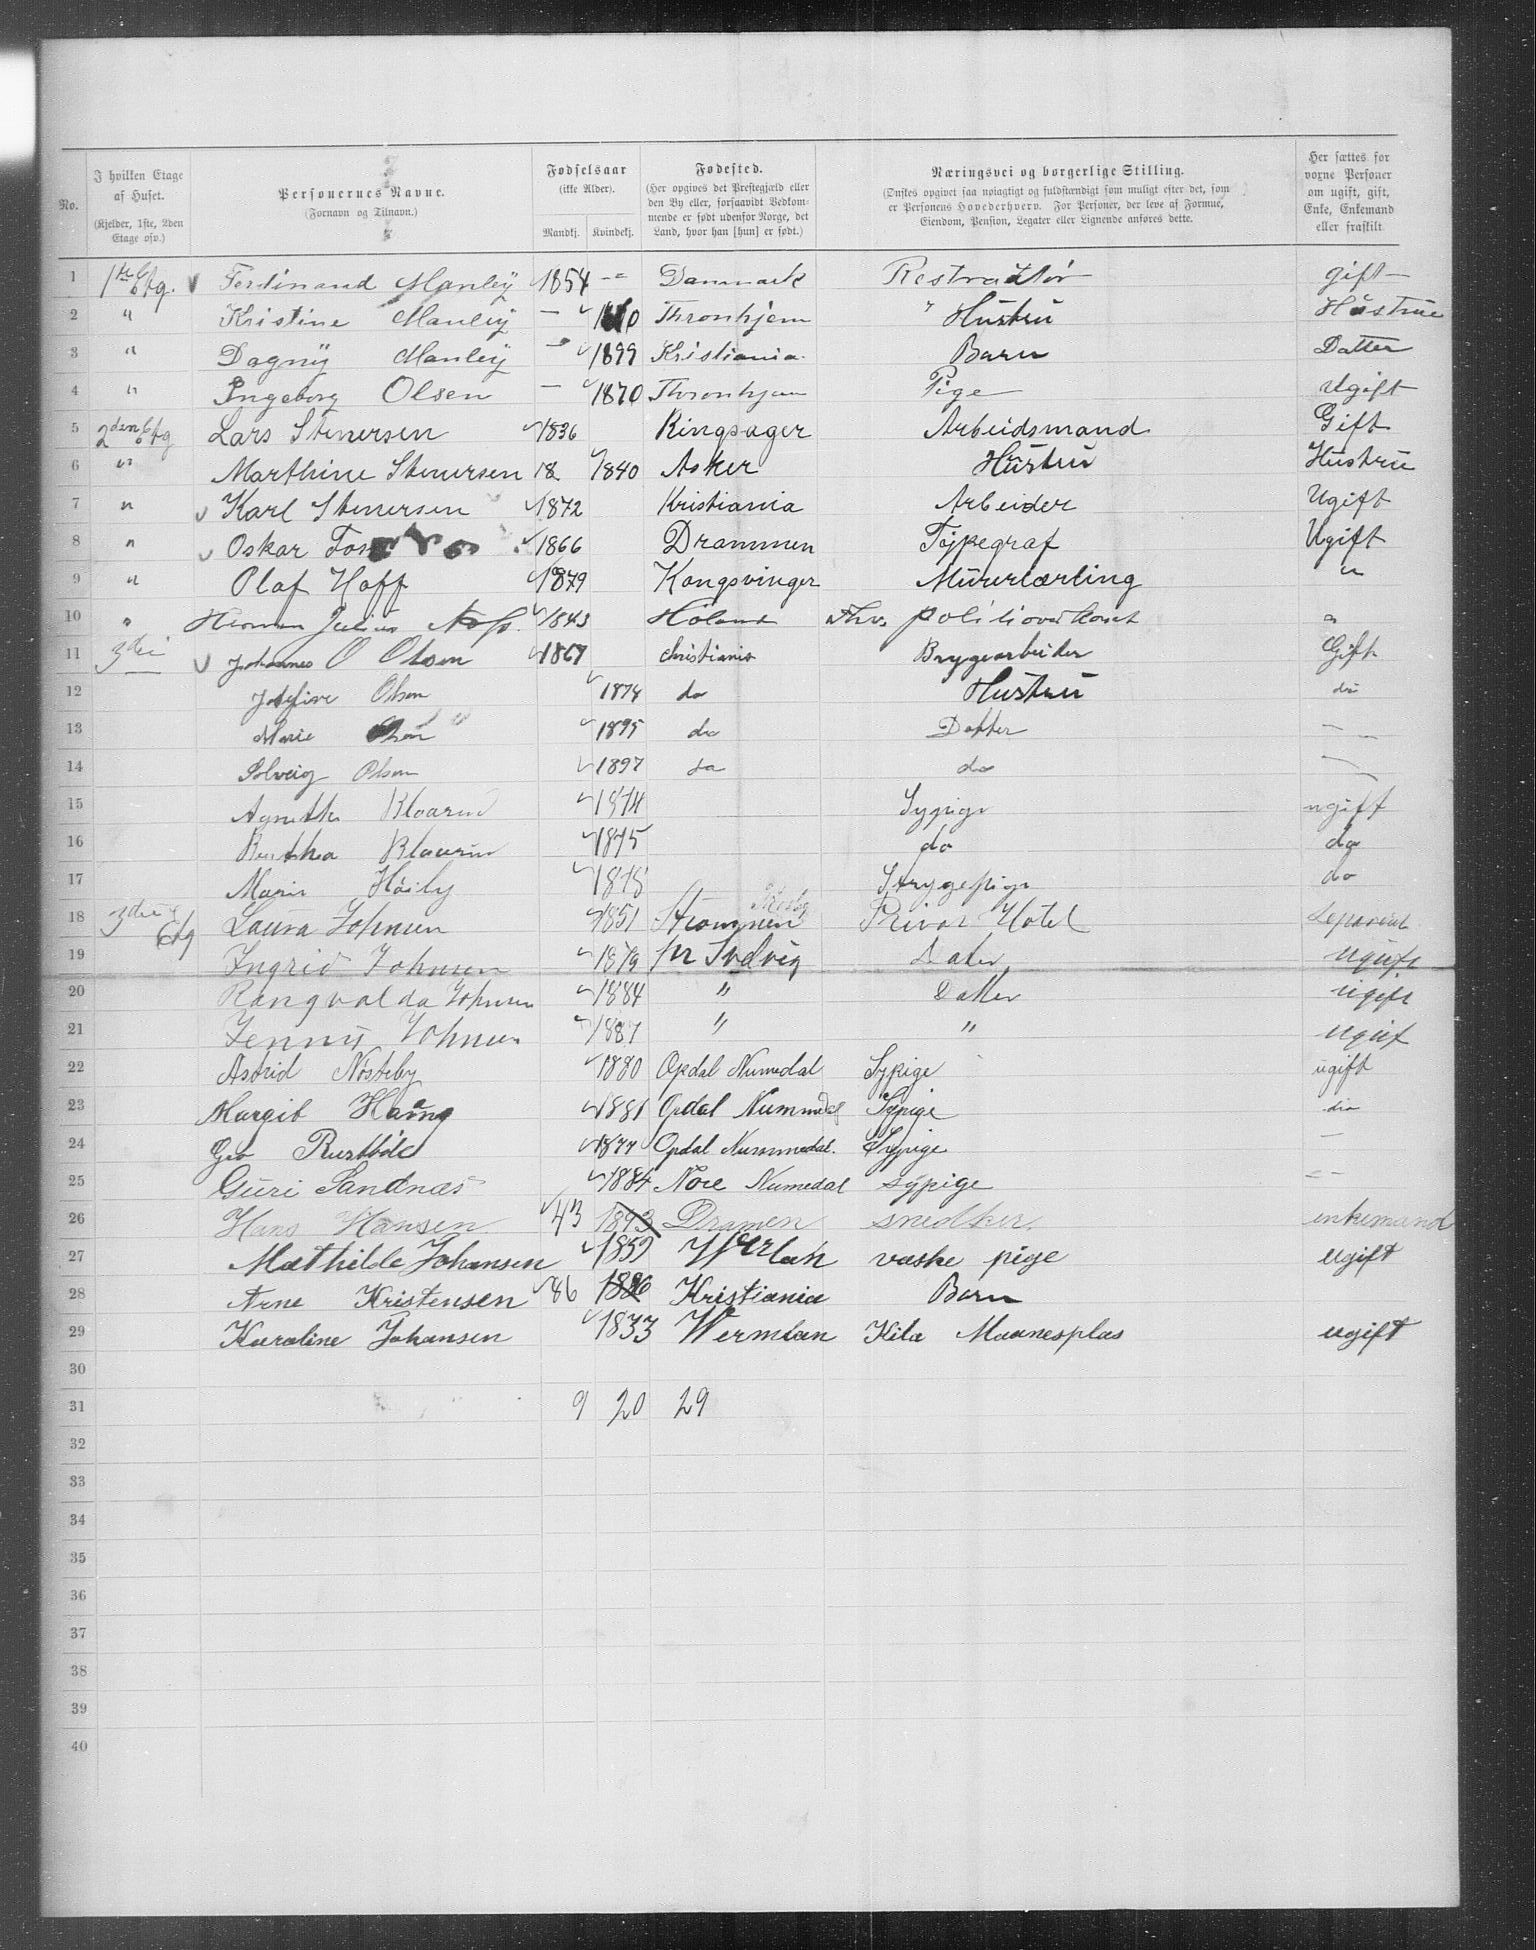 No.
I hvilken Etage af Huset.
(Kjelder, 1ste, 2den Etage osv.)
Personernes Navne.
(Fornavn og Tilnavn.)
Fødselsaar
(ikke Alder).
Mandkj. Kvindekj.
Fødested.
(Her opgives det Prestegjæld eller den By eller, forsaavidt Vedkommende er født udenfor Norge, det Land, hvor han [hun] er født.)
Næringsvei og borgerlige Stilling.
(Ønskes opgivet saa nøiagtigt og fuldstændigt som muligt efter det, som er Personens Hovederhverv. For Personer, der leve af Formue, Eiendom, Pension, Legater eller Lignende anføres dette.
Her sættes for vorne Personer om ugift, gift, Enke, Enkemand eller fraskilt.
1 1ste Etg. Ferdinand Manley 1854 — Danmark Restratør gift
2 " Kristine Manley — Thronhjem " Hustru Hustrue
3 " Dagny Manley — 1899 Kristiania Barn Datter
4 " Ingeborg Olsen — 1870 Thronhjem Pige Ugift
5 2den Etg Lars Stenersen 1836 Ringsager Arbeidsmand Gift
6 " Marthine Stenersen 18 1840 Asker Hustru Hustru
7 " Karl Stenersen 1872 Kristiania Arbeider Ugift
8 " Oskar 1866 Drammen Typegraf Ugift
9 " Olaf Hoff 1879 Kongsvinger Murerlærling "
10 " Herman Julius 1843 Høland fhv. "
11 3die Johannes O Olsen 1867 Christiania Bryggearbeider Gift
12 Josefine Olsen 1874 do Hustru do
13 Marie Olsen 1895 do Datter —
14 Solveig Olsen 1897 do do —
15 Agnethe 1874 Sypige ugift
16 Berthea 1875 do do
17 Marie Høily 1878 Strygepige do
18 3die Etg Laura Johnsen 1851 Strømmen Privat Hotel Separeret
19 Ingrid Johnsen 1879 pr Svelvig Dater ugift
20 Rangvalda Johnsen 1884 " Datter ugift
21 Jenny Johnsen 1887 " " ugift
22 Astrid Nøsteby 1880 Opdal Numedal Sypige ugift
23 Margit Haung 1881 Opdal Nummedal Sypige do
24 Gro 1877 Opdal Nummedal. Sypige —
25 Guri Sandnæs 1884 Nore Numedal sypige —
26 Hans Hansen 43 1843 Dramen snedker enkemand
27 Mathilde Johansen 1859 Werlan vaske pige ugift
28 Arne Kristensen 86 1886 Kristiania Barn
29 Karoline Johansen 1833 Wermlan ugift
30
31 9 20 29
32
33
34
35
36
37
38
39
40